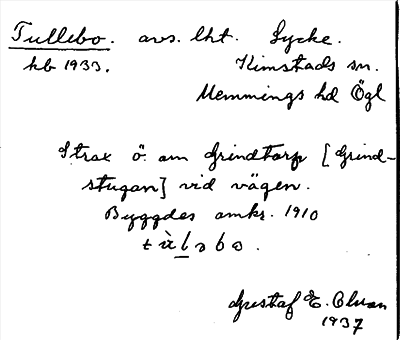 Tullebo. avs. lht. Lycke.
kb 1933. Kimstads sn.
Memmings hd Ögl
Strax ö. om Grindtorp [Grind-
stugan] vid vägen.
Byggdes omkr. 1910
Gustaf E. Olsson
1937